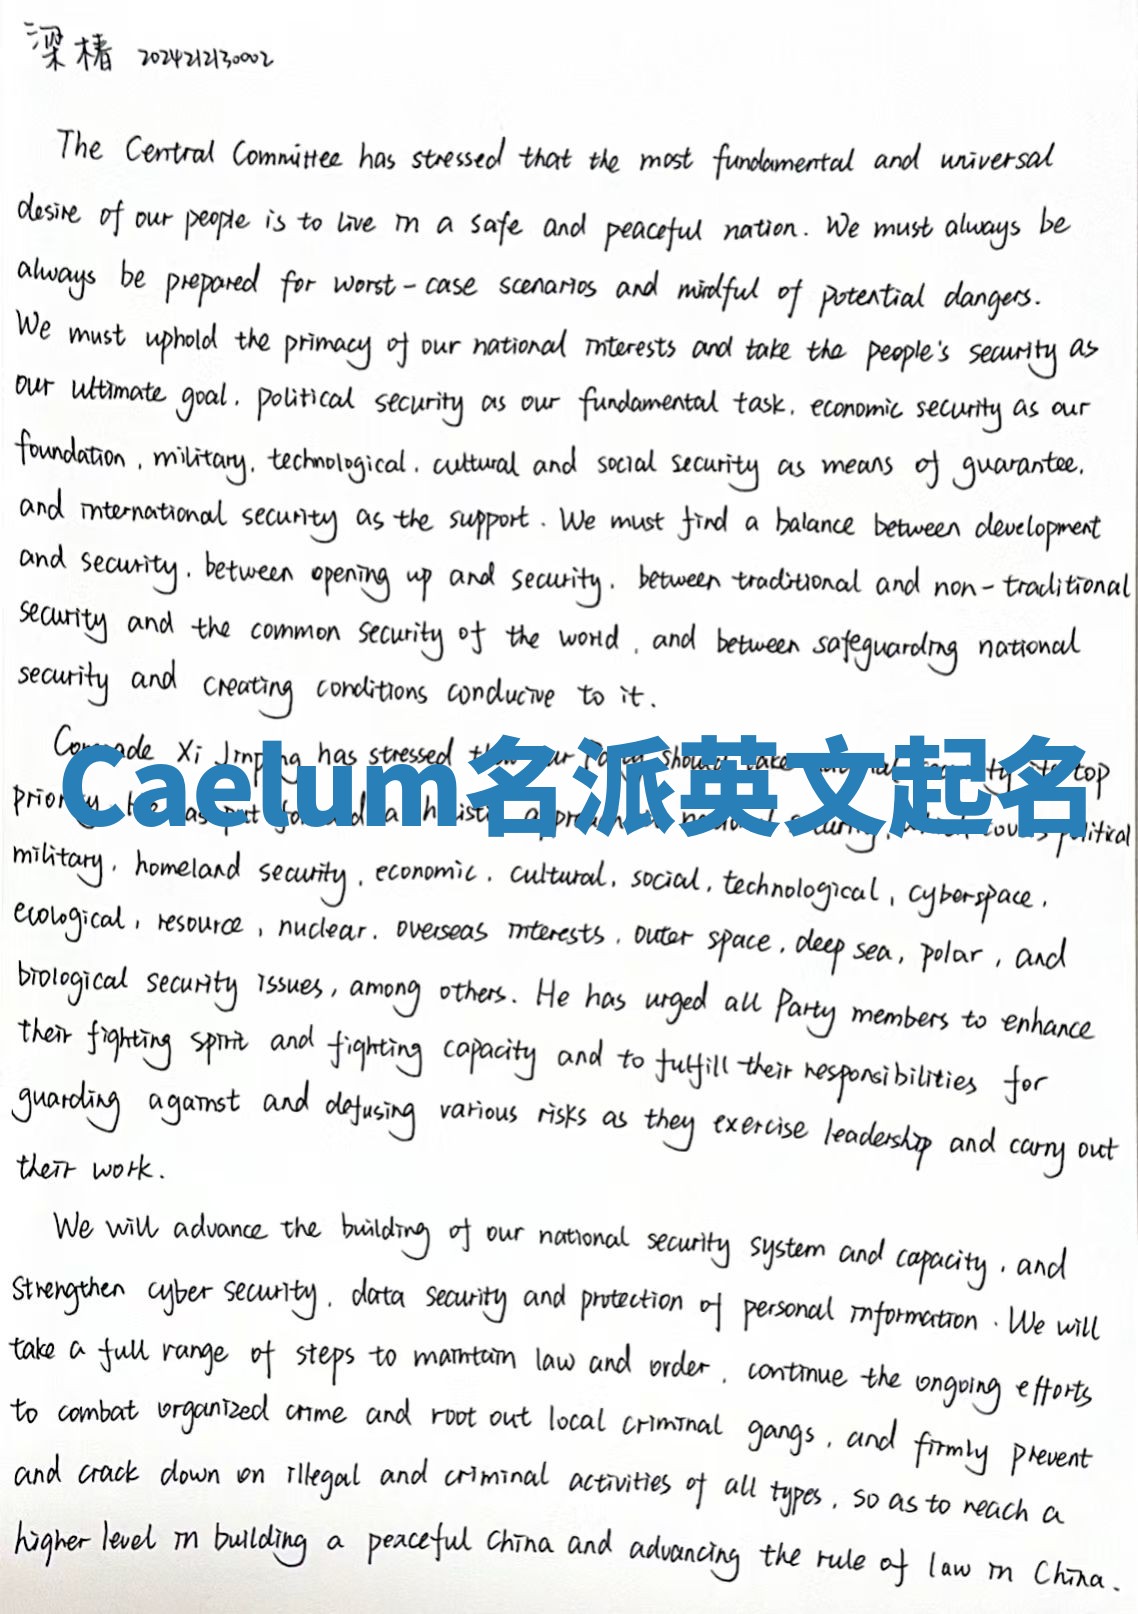 梁椿 2024212130002
The Central Committee has stressed that the most fundamental and universal
desire of our people is to live in a safe and peaceful nation. We must always be
always be prepared for worst-case scenarios and mindful of potential dangers.
We must uphold the primacy of our national interests and take the people's security as
our ultimate goal, political security as our fundamental task, economic security as our
foundation, military, technological, cultural and social security as means of guarantee,
and international security as the support. We must find a balance between development
and security, between opening up and security, between traditional and non-traditional
security and the common security of the world, and between safeguarding national
security and creating conditions conducive to it.
Comrade Xi Jinping has stressed that our Party should take security its top
Caelum名派英文起名
priority. He has put forward a holistic approach national security, which covers political
military, homeland security, economic, cultural, social, technological, cyberspace,
ecological, resource, nuclear, overseas interests, outer space, deep sea, polar, and
biological security issues, among others. He has urged all Party members to enhance
their fighting spirit and fighting capacity and to fulfill their responsibilities for
guarding against and defusing various risks as they exercise leadership and carry out
their work.
We will advance the building of our national security system and capacity, and
strengthen cyber security, data security and protection of personal information. We will
take a full range of steps to maintain law and order, continue the ongoing efforts
to combat organized crime and root out local criminal gangs, and firmly prevent
and crack down on illegal and criminal activities of all types, so as to reach a
higher level in building a peaceful China and advancing the rule of law in China.